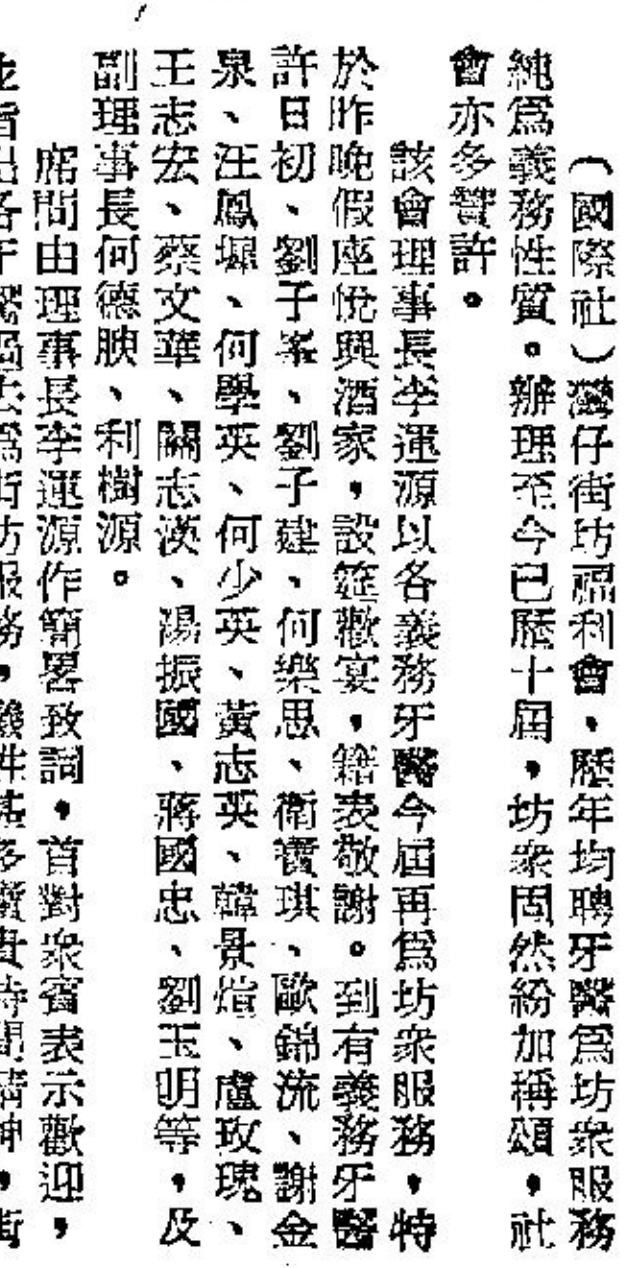 (國際社)灣仔街坊福利會,歷年均聘牙醫爲坊衆服務
純爲義務性質。辦理至今已歷十屆,坊衆固然紛加稱頌,社
會亦多讚許。
該會理事長李運源以各義務牙醫今屆再爲坊衆服務,特
於昨晚假座悅興酒家,設筵歡宴,藉表敬謝。到有義務牙醫
許日初、劉子峯、劉子建、何樂思、衛寶琪、歐錦流、謝金
泉、汪鳳墀、何學英、何少英、黃志英、韓景煊、盧玫瑰、
王志宏、蔡文華、關志漢、湯振國、蔣國忠、劉玉明等,及
副理事長何德腴、利樹源。
席間由理事長李運源作簡畧致詞,首對衆賓表示歡迎,